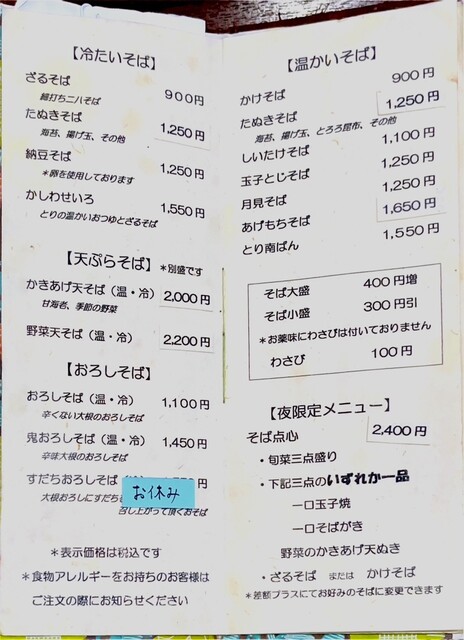 【冷たいそば】
ざるそば 900円
細打ち二八そば
たぬきそば 1,250円
海苔、揚げ玉、その他
納豆そば 1,250円
*卵を使用しております
かしわせいろ 1,550円
とりの温かいおつゆとざるそば
【天ぷらそば】*別盛です
かきあげ天そば(温・冷) 2,000円
甘海老、季節の野菜
野菜天そば(温・冷) 2,200円
【おろしそば】
おろしそば(温・冷) 1,100円
辛くない大根のおろしそば
鬼おろしそば(温・冷) 1,450円
辛味大根のおろしそば
すだちおろしそば 円
お休み
大根おろしにすだち
召し上がって頂くおそば
*表示価格は税込です
*食物アレルギーをお持ちのお客様は
ご注文の際にお知らせください
【温かいそば】
かけそば 900円
たぬきそば 1,250円
海苔、揚げ玉、とろろ昆布、その他
しいたけそば 1,100円
玉子とじそば 1,250円
月見そば 1,250円
あげもちそば 1,650円
とり南ばん 1,550円
そば大盛 400円増
そば小盛 300円引
*お薬味にわさびは付いておりません
わさび 100円
【夜限定メニュー】
そば点心 2,400円
・旬菜三点盛り
・下記三点のいずれか一品
一口玉子焼
一口そばがき
野菜のかきあげ天ぬき
・ざるそば または かけそば
*差額プラスにてお好みのそばに変更できます